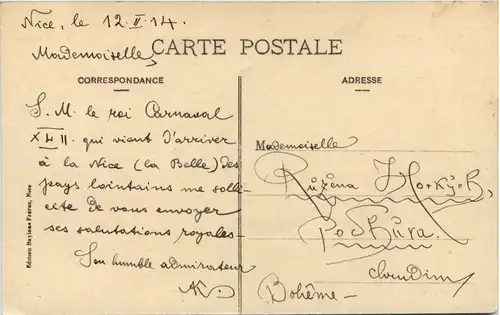 Nice, le 12.II.14.
Mademoiselle,
CARTE POSTALE
CORRESPONDANCE
S. M. le roi Carnaval
qui vient d'arriver
à la Nice (la Belle) des
pays lointains me solli-
cite de vous envoyer
ses salutations royales.-
Son humble admirateur
AK.
ADRESSE
Mademoiselle
Růžena
Pod Kura.
Chrudim
Bohême -
Edition Baylone Frères, Nice